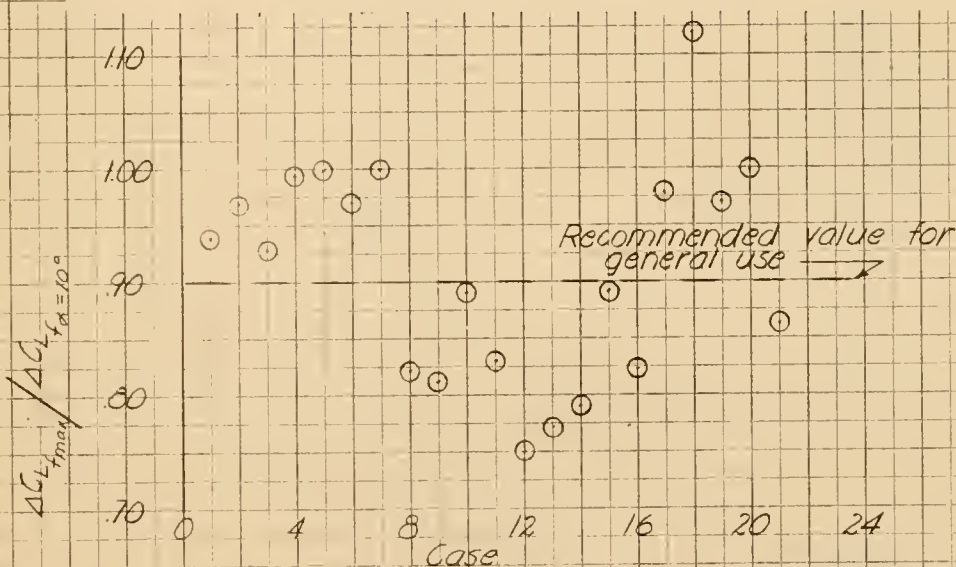 1.10
1.00
.90
.80
.70
ΔC_L_f_max / ΔC_L_f_α=10°
Recommended value for
general use
0 4 8 12 16 20 24
Case